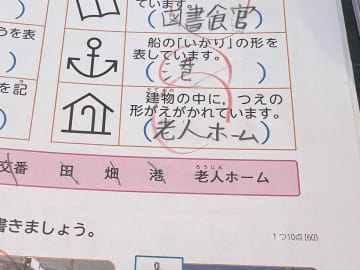 ています。
(図書食官)
船の「いかり」の形を
表しています。
(港)
うを表
を記
たてもの
建物の中に、つえの
形がえがかれています。
(老人ホーム)
ろうじん
交番 田 畑 港 老人ホーム
書きましょう。
1つ10点〔60〕